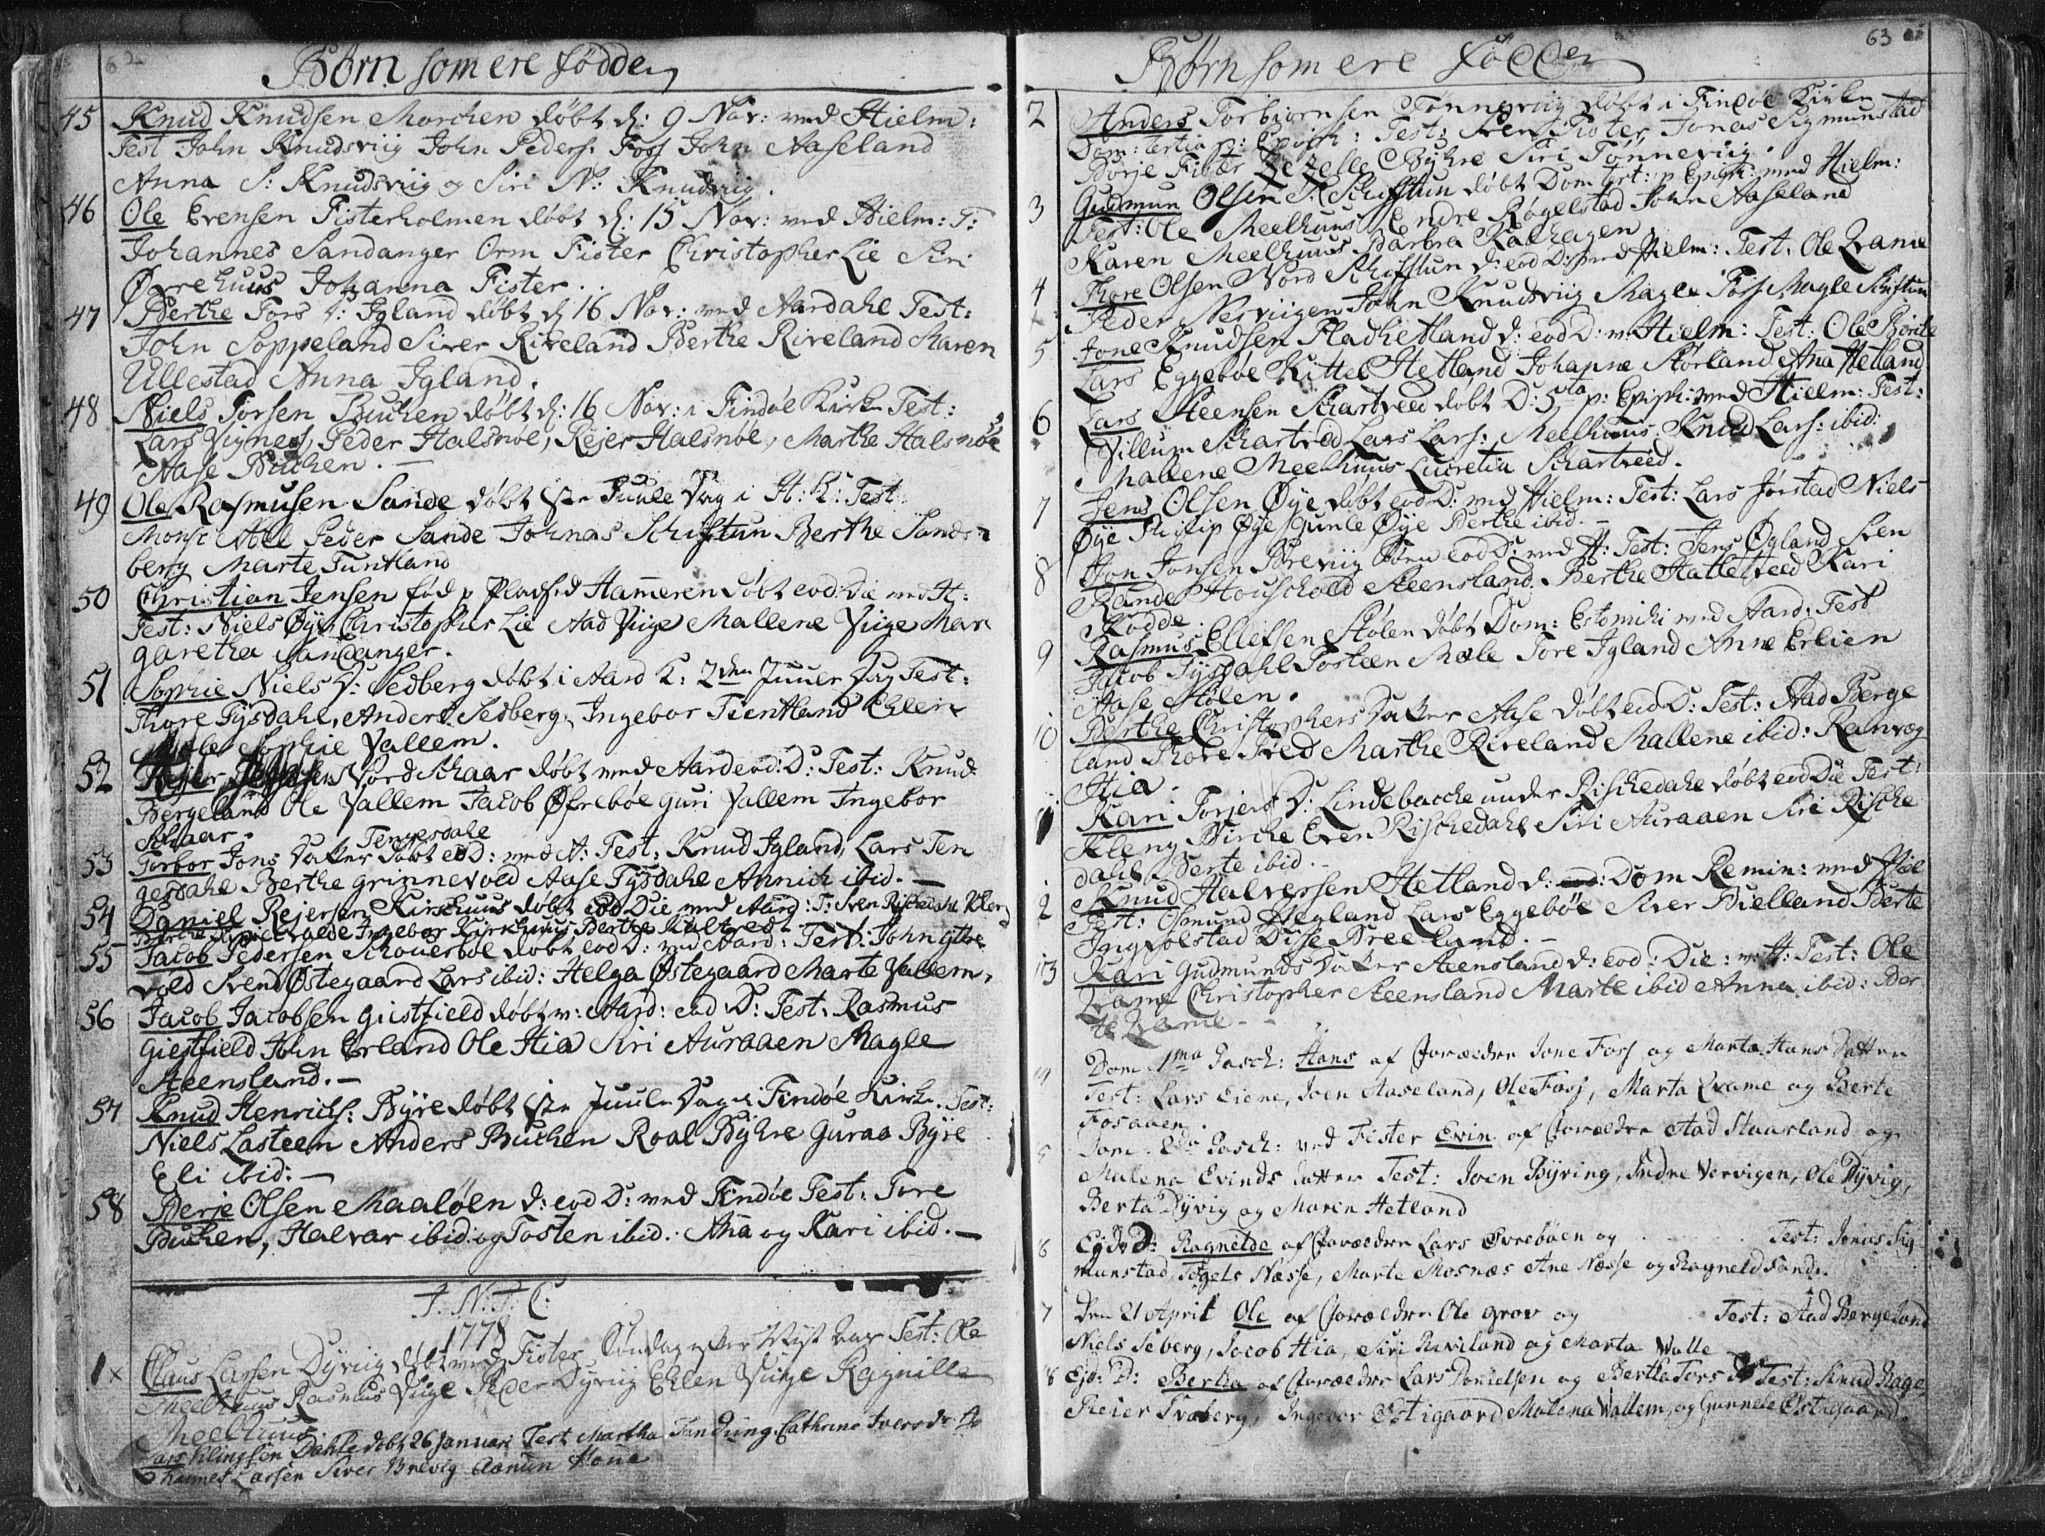 62
Børn som ere fødde
45 Knud Knudsen Marchen døbt d: 9 Nov: ved Hielm:
Test John Knudsviig John Peders: Foss John Aaseland
Anna S: Knudsviig og Siri N: Knudsviig.
46 Ole Evensen Fisterholmen døbt d: 15 Nov: ved Hielm: T:
Johannes Sandanger Orm Fister Christopher Lie Siri
Øvrehuus Johanna Fister.
47 Berthe Tors D: Igland døbt d 16 Nov: ved Aardahl Test:
John Soppeland Siver Riveland Berthe Riveland Maren
Ullestad Anna Igland.
48 Niels Torsen Buchen døbt d: 16 Nov: i Findøe Kirke Test:
Lars Vignes, Peder Halsnøe, Rejer Halsnøe, Marthe Halsnøe
Aase Buchen.
49 Ole Rasmusen Sande døbt 1ste Juule Dag i H: K: Test
Monsr Abel Peder Sande Johnas Schiftun Berthe Sand-
berg Marte Tuntland
50 Christian Jensen fød p Pladsed Hameren døbt eod: Die ved H:
Test: Niels Øye Christopher Lie Aad Viige Mallene Viige Mar
garetha Sandanger.
51 Sophie Niels D: Sedberg døbt i Aard K: 2den Juule Dag Test:
Thore Tysdahl, Anders Sedberg, Ingebor Tuntland Ellen
Sophie Vallem.
52 Rejer Nord Schaar døbt ved Aard eod: D: Test: Knud
Bergeland Ole Vallem Jacob Øfrebøe Guri Vallem Ingebor
Schaar.
Tengesdale
53 Torbor Jons Datter døbt eod D: ved A: Test: Knud Igland Lars Ten
gesdahl Berthe Grinnevold Aase Tysdahl Annich ibid.
54 Daniel Rejersen Kirchuus døbt eod Die ved Aard: T: Sven Rischedahl
Ingebor Kirchuus Berthe Kaltved.
55 Jacob Pedersen Schouerbøe døbt eod D: ved Aard: Test: John Gitte
vold Svend Østegaard Lars ibid: Helga Østegaard Marte Vallem.
56 Jacob Jacobsen Giestfield døbt v: Aard: eod D: Test: Rasmus
Giestfield John Erland Ole Hia Siri Auraaen Magle
Steensland.
57 Knud Henrichs: Byre døbt 1ste Juule Dag i Findøe Kirke. Test:
Niels Lasteen Anders Buchen Roal Byhre Guraa Byre
Eli ibid:
58 Berje Olsen Maaløen d: eod D: ved Findøe Test: Tore
Buchen, Halvar ibid: og Tosten ibid. Aña og Kari ibid.
J. N. J. C:
1778
1 Claus Larsen Dyrviig døbt ved Fister Søndag efter Nyt Aar Test: Ole
Meelhuus Rasmus Viige Peder Dyrviig Ellen Viige Ragnille
Meelhuus.
Lars Klingsen Dahle døbt 26 Januari Test Martha Tandung Cathrine
Larsen Siver Brevig Aanun
63
Børn som ere fødde
2 Anders Torbiørnsen Tønneviig døbt i Findøe Kirke
Dom: tertia p: Epiph: Test: Sven Fister Jonas Sigmunstad
Børje Byhre Siri Tønneviig.
3 Gudmun Olsen S: Schiftun døbt Dom 4rt: p Epiph: ved Hielm:
Test: Ole Meelhuus Endre Røgelstad John Aaseland
Karen Meelhuus Barbra Kalhagen
4 Thore Olsen Nord Schiftun d: eod D: ved Hielm: Test: Ole Qvame
Peder Nerviigen John Knudsviig Magle Foss Magle Schiftun
5 Jone Knudsen Pladhetland d: eod D: v: Hielm: Test: Ole
Lars Eggebøe Kittel Hetland Johanne Størland Ana Hetland
6 Lars Steensen Schartveed døbt D: 5ta p: Epiph: ved Hielm: Test:
Villum Schartved Lars Lars: Meelhuus Knud Lars: ibid:
Mallene Meelhuus Lucretia Schartveed.
7 Jens Olsen Øye døbt eod D: ved Hielm: Test: Lars Jørstad Niels
Øye Philip Øye Gunle Øye Berthe ibid.
8 Jon Jonsen Breviig eod D: ved H: Test: Jens Øgland Sven
Rande Houschold Steensland. Berthe Hattelveed Kari
Rodde.
9 Rasmus Ellefsen Stølen døbt Dom: Estomihi ved Aard: Test
Jacob Tysdahl Tosteen Mæle Tore Igland Anne Erlien
Aase Stølen.
10 Berthe Christophers Datter Aase døbt eod D: Test: Aad Berge
land Thore Marthe Riveland Mallene ibid: Ranveg
Hia.
Kari Torjers D: Lindebacche under Rischedahl døbt eod Die Test:
Birche Even Rischedahl Siri Auraaen Siri Rische
dahl Berte ibid.
2 Knud Halversen Hetland d: Dom Remin: ved Hiel
Test: Osmund Hegland Lars Eggebøe Siver Bielland Berte
Ingvolstad Disse Breeland.
13 Kari Gudmunds Datter Steensland d: eod: Die: v: H: Test: Ole
Qvame Christopher Steensland Marte ibid Anna ibid: Ber
te Qvame.
14 Dom 1ma Pasch: Hans af Forældre Jone Foss og Marta Hans Datter
Test: Lars Eiene, Joen Aaseland, Ole Foss, Marta Qvame og Berte
Fosaaen.
5 Dom: 2da Pasch: ved Fister Evin af Forældre Aad Staarland og
Malena Evinds Datter Test: Joen Byring, Indre Vervigen, Ole Dyvig,
Berta Dyvig og Maren Hetland
6 Ejd: D: Ragnelde af Forældre Lars Øvrebøen og Test: Jonas Sig
munstad, Tøgels Næsse, Marte Mosnæs Ane Næsse og Ragneld Sande.
7 Den 21 April Ole af Forældre Ole Grov og Test: Aad Bergeland
Niels Seberg, Jacob Hia, Siri Riviland og Marta Valle
8 Ejd: D: Bertha af Forældre Lars Danielsen og Bertha Tors D Test: Knud Hage,
Reier Svaberg, Ingebor Østigaard, Malena Vallem, og Gunnele Østigaard.